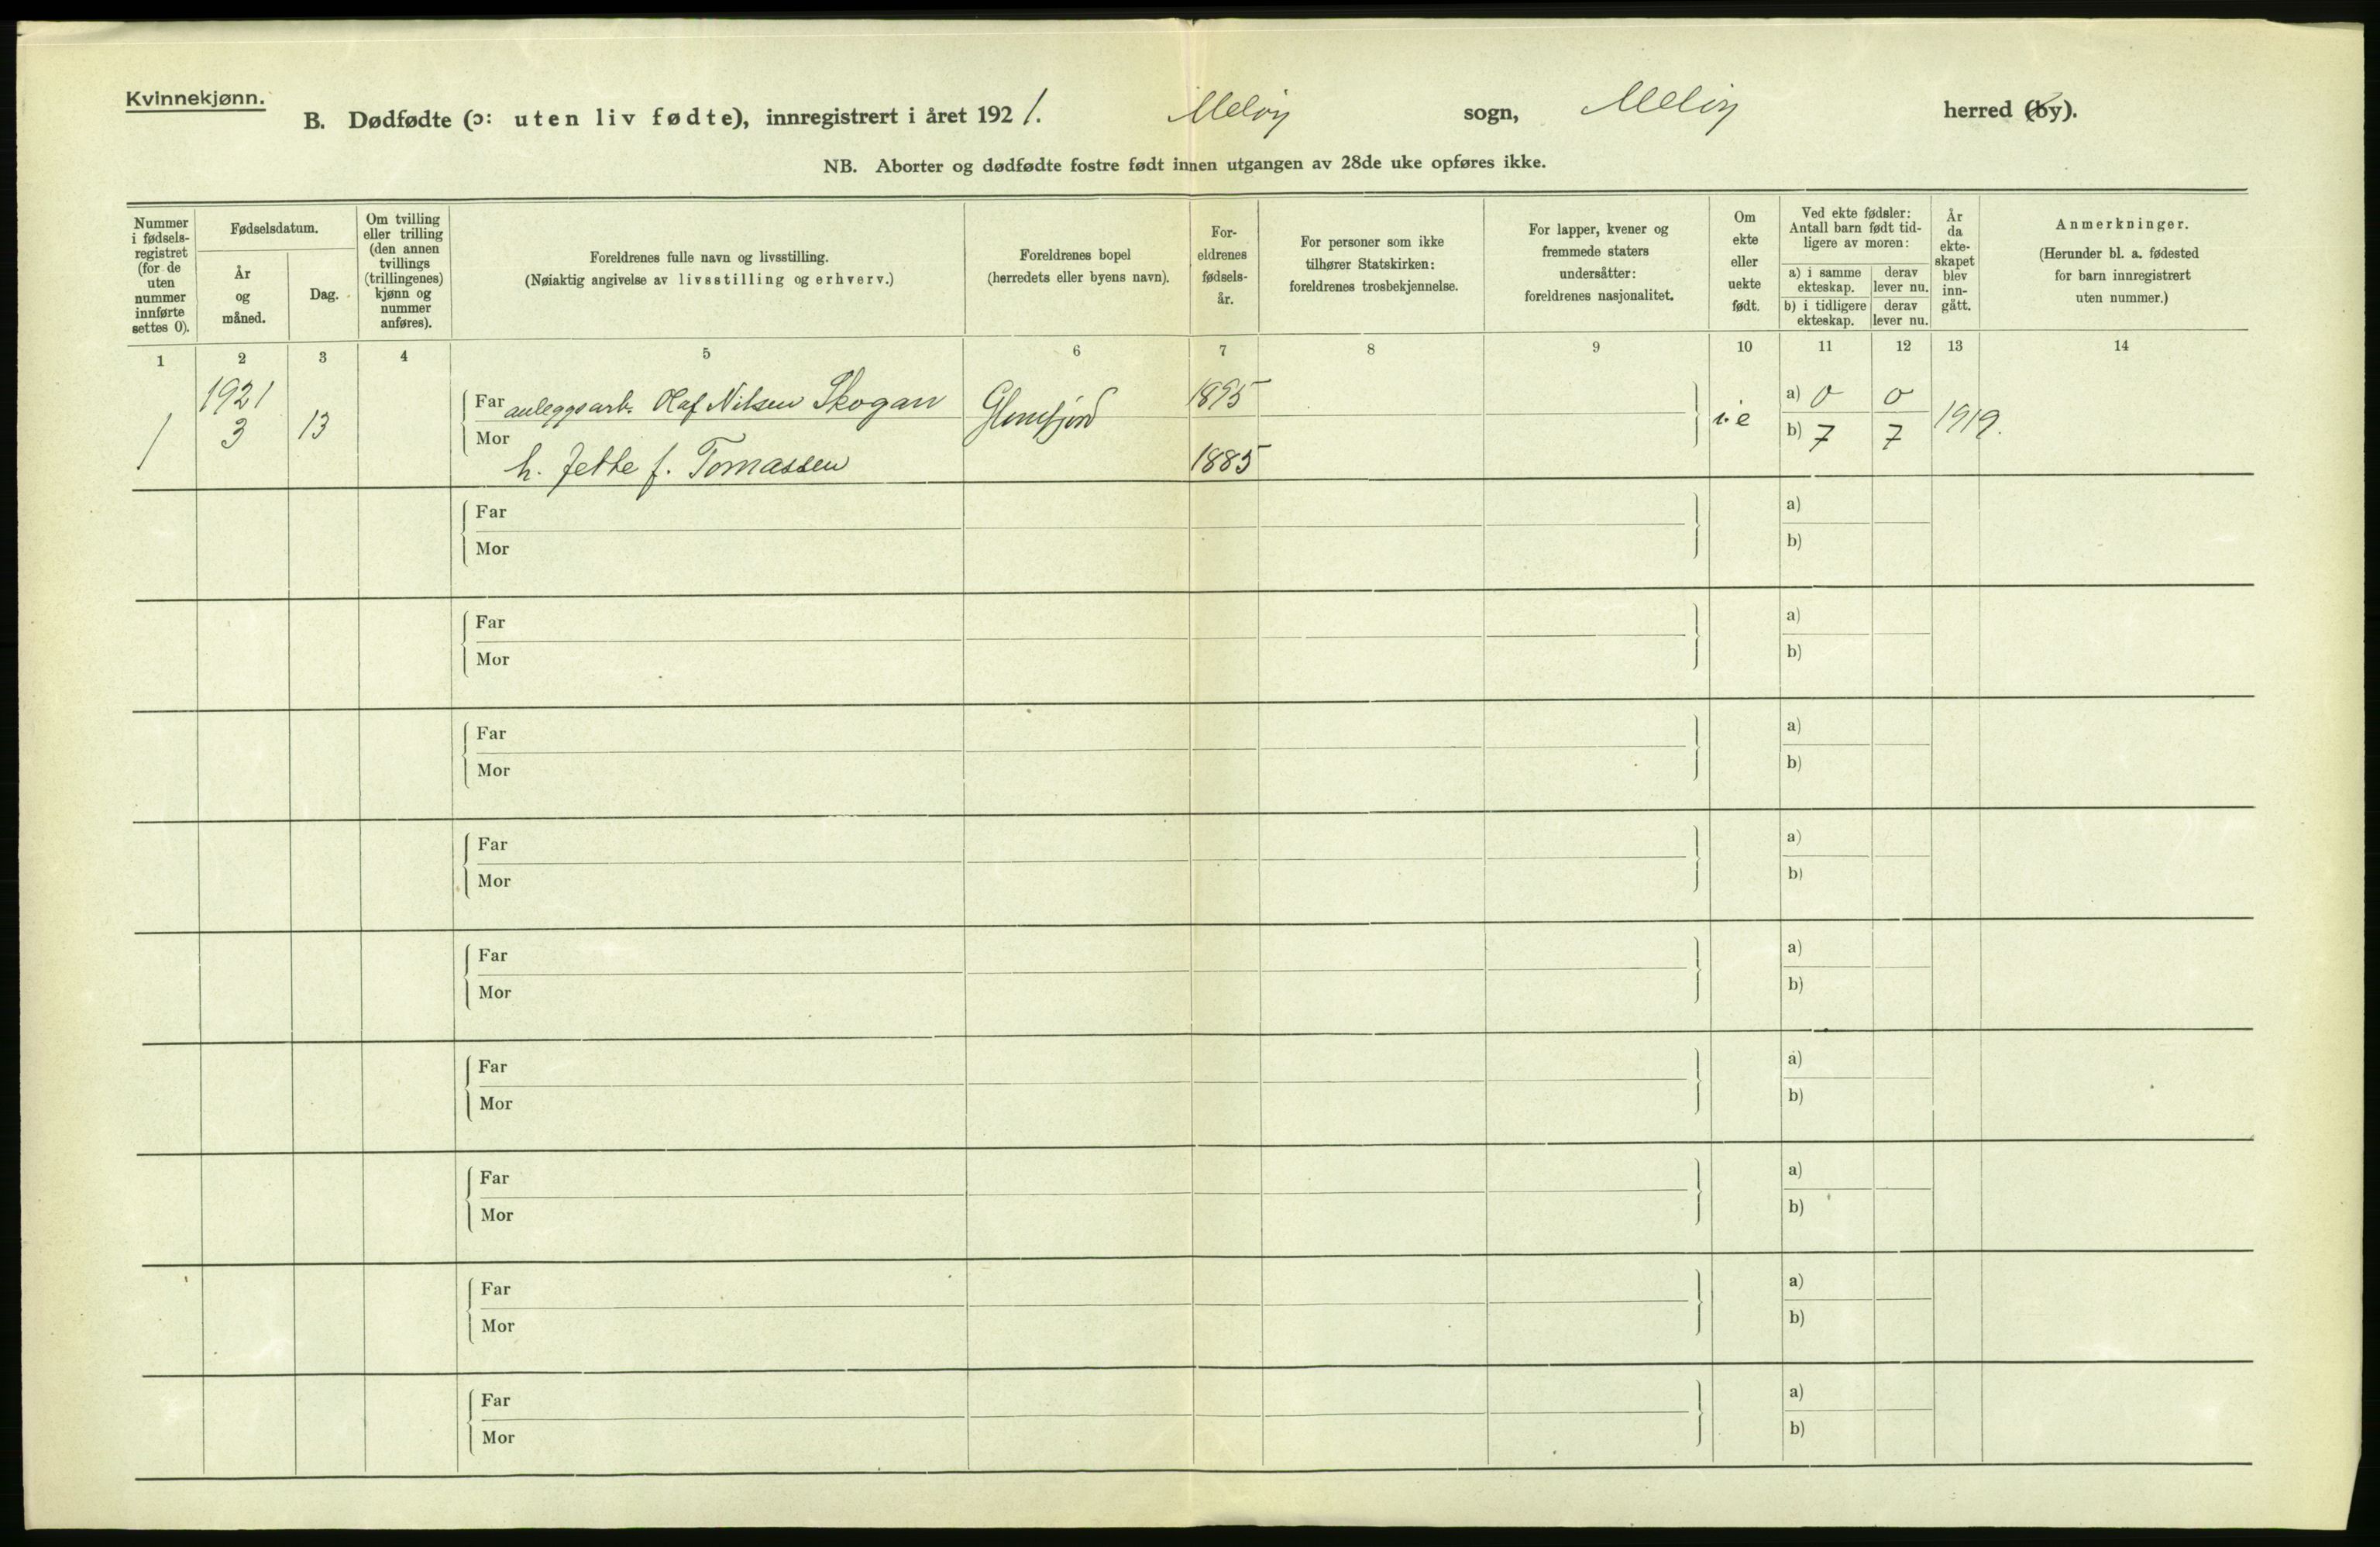 Kvinnekjønn.
B. Dødfødte (ɔ: uten liv fødte), innregistrert i året 1921. Meløy sogn, Meløy herred (by).
NB. Aborter og dødfødte fostre født innen utgangen av 28de uke opføres ikke.
Nummer
i fødsels-
registret
(for de
uten
nummer
innførte
settes 0).
Fødselsdatum.
År
og
måned.
Dag.
Om tvilling
eller trilling
(den annen
tvillings
(trillingenes)
kjønn og
nummer
anføres).
Foreldrenes fulle navn og livsstilling.
(Nøiaktig angivelse av livsstilling og erhverv.)
Foreldrenes bopel
(herredets eller byens navn).
For-
eldrenes
fødsels-
år.
For personer som ikke
tilhører Statskirken:
foreldrenes trosbekjennelse.
For lapper, kvener og
fremmede staters
undersåtter:
foreldrenes nasjonalitet.
Om
ekte
eller
uekte
født.
Ved ekte fødsler:
Antall barn født tid-
ligere av moren:
a) i samme
ekteskap.
derav
lever nu.
b) i tidligere
ekteskap.
derav
lever nu.
År
da
ekte-
skapet
blev
inn-
gått.
Anmerkninger.
(Herunder bl. a. fødested
for barn innregistrert
uten nummer.)
1 2 3 4 5 6 7 8 9 10 11 12 13 14
1921
1 3 13
Far anleggsarb. Olaf Nilsen Skogan Glomfjord 1895 i.e a) 0 0 1919.
Mor b) 7 7
h. Jette f. Tomassen 1885
Far a)
Mor b)
Far a)
Mor b)
Far a)
Mor b)
Far a)
Mor b)
Far a)
Mor b)
Far a)
Mor b)
Far a)
Mor b)
Far a)
Mor b)
Far a)
Mor b)